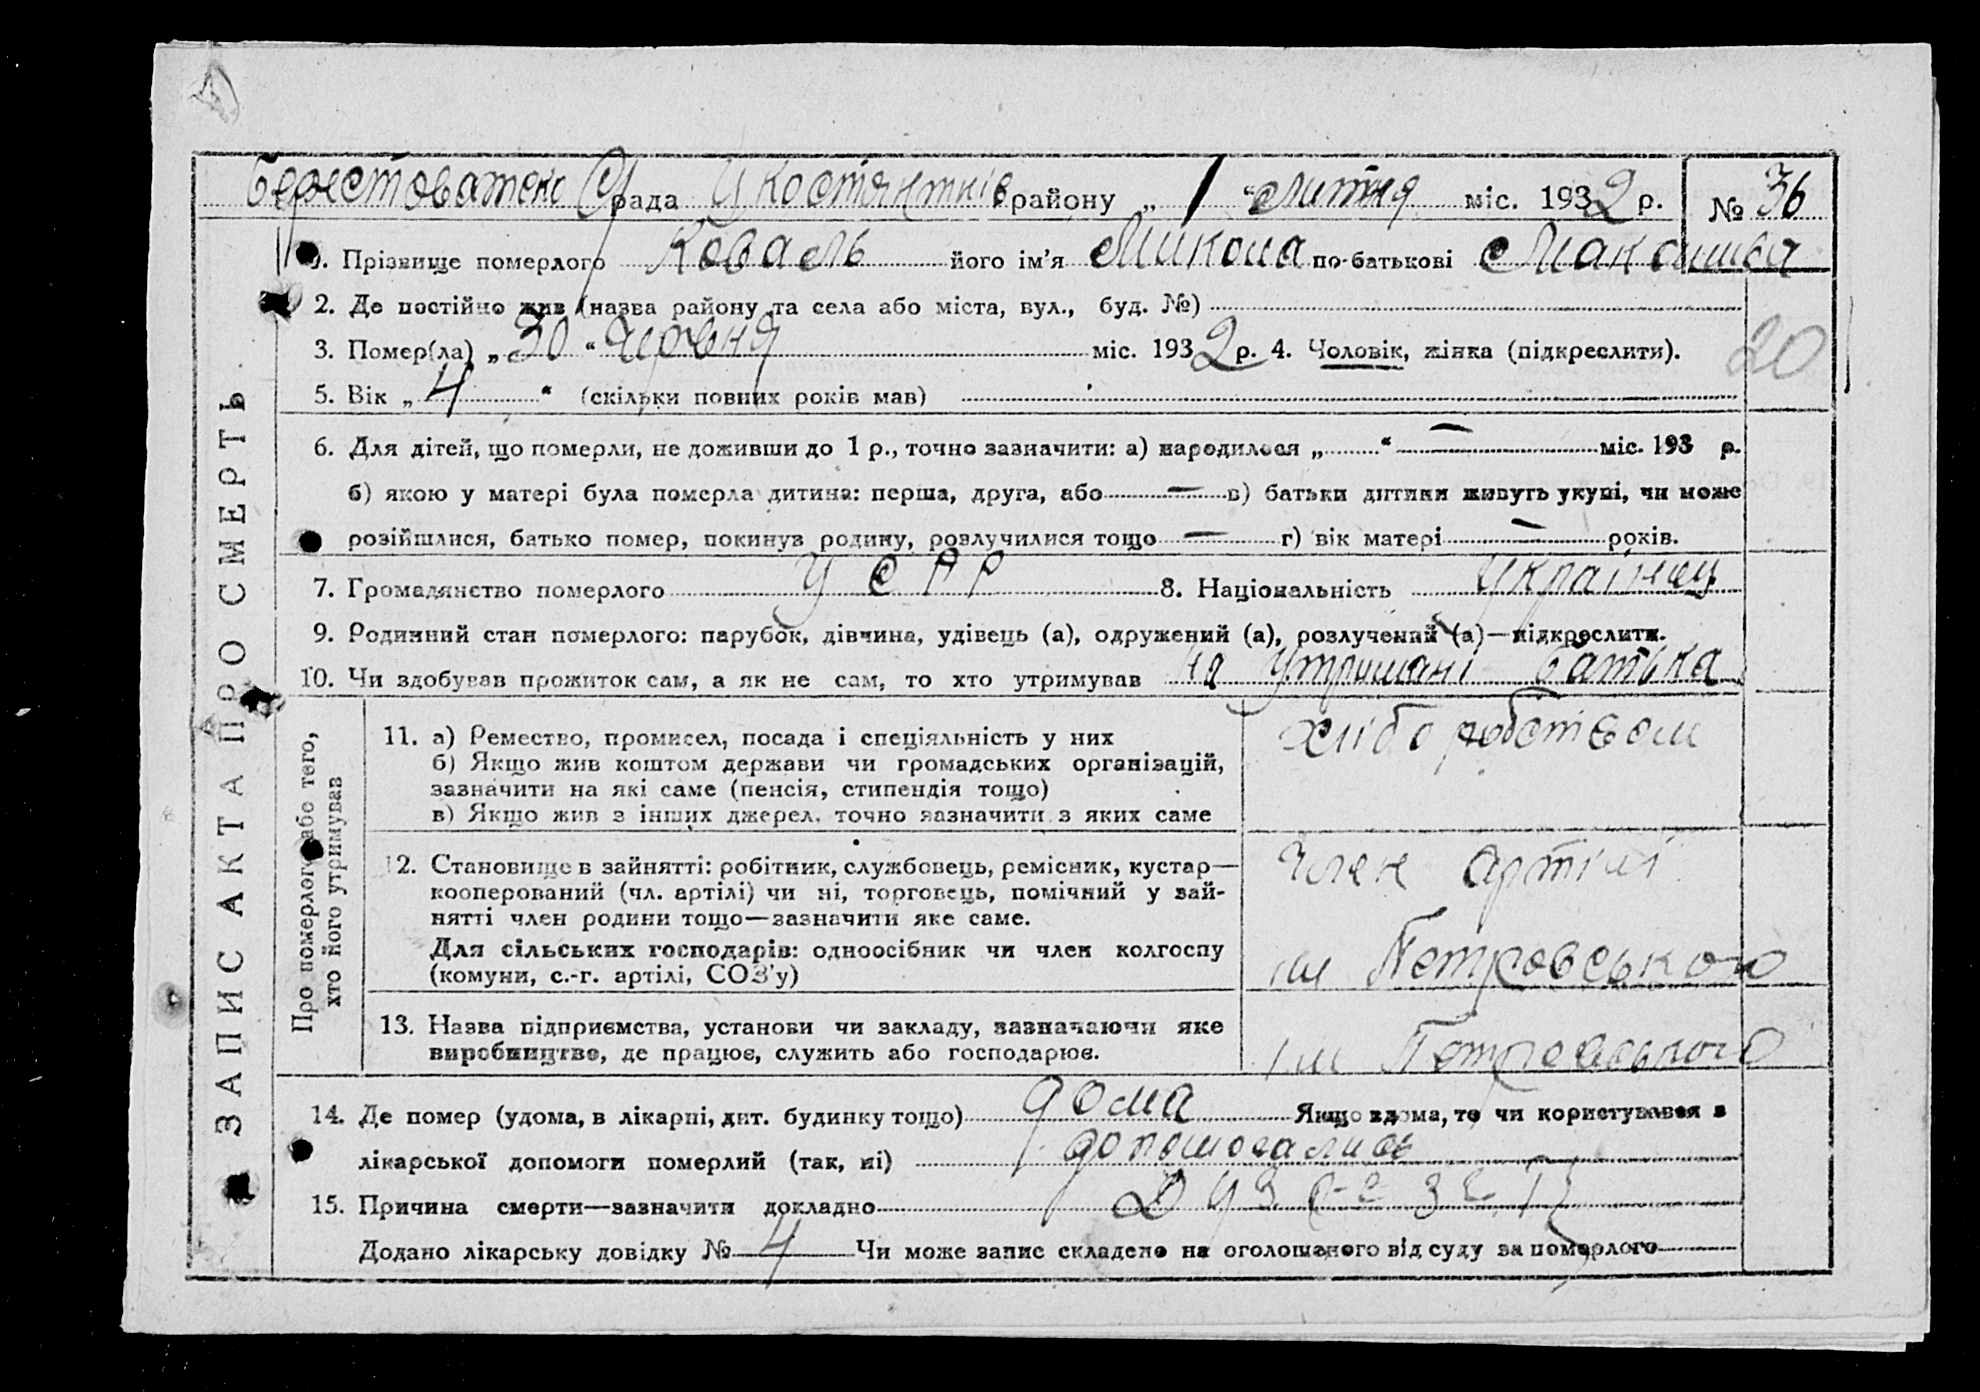 Берестоватськ С/рада У Костянтнів району „ 1 “ Литня міс. 1932 р. № 36
1. Прізвище померлого Коваль його ім’я Микола по-батькові
2. Де постійно жив (назва району та села або міста, вул., буд. №)
3. Помер(ла) „ 30 “ Червня міс. 1932 р. 4. Чоловік, жінка (підкреслити).
20
5. Вік „ 4 “ (скільки повних років мав)
6. Для дітей, що померли, не доживши до 1 р., точно зазначити: а) народилося „ “ — міс. 193 р.
б) якою у матері була померла дитина: перша, друга, або — в) батьки дитини живуть укупі, чи може
розійшлися, батько помер, покинув родину, розлучилися тощо — г) вік матері — років.
7. Громадянство померлого УСРР 8. Національність Українец
9. Родинний стан померлого: парубок, дівчина, удівець (а), одружений (а), розлучений (а)—підкреслити.
10. Чи здобував прожиток сам, а як не сам, то хто утримував На Утримані батька
ЗАПИС АКТА ПРО СМЕРТЬ
Про померлого або того,
хто його утримував
11. а) Ремество, промисел, посада і спеціяльність у них
б) Якщо жив коштом держави чи громадських організацій,
зазначити на які саме (пенсія, стипендія тощо)
в) Якщо жив з інших джерел, точно зазначити з яких саме
хліборобством
12. Становище в зайнятті: робітник, службовець, ремісник, кустар—
кооперований (чл. артілі) чи ні, торговець, помічний у зай-
нятті член родини тощо—зазначити яке саме.
Для сільських господарів: одноосібник чи член колгоспу
(комуни, с.-г. артілі, СОЗ’у)
Член артілі
ім Петровського
13. Назва підприємства, установи чи закладу, зазначаючи яке
виробництво, де працює, служить або господарює.
ім Петровського
14. Де помер (удома, в лікарні, дит. будинку тощо) дома Якщо вдома, то чи користувався з
лікарської допомоги померлий (так, ні) допомогались
15. Причина смерти—зазначити докладно
Додано лікарську довідку № 4 Чи може запис складено на оголошеного від суду за померлого